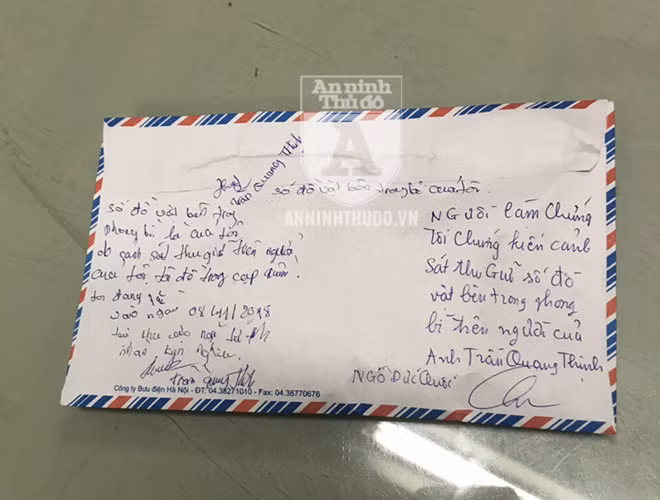 An ninh
Thủ đô
A
ANNINHTHUDO.VN
Trần Quang Thịnh
số đồ vật bên trong là của tôi.
số đồ vật bên trong
phong bì là của tôi
sát thu giữ trên người
của tôi, tôi để trong cạp quần.
tôi đang
vào ngày 08/11/2018
Trần Quang Thịnh
NGƯỜI Làm Chứng
Tôi Chứng kiến cảnh
Sát thu Giữ số đồ
vật bên trong phong
bì trên người của
Anh Trần Quang Thịnh
NGÔ Đức
Công ty Bưu điện Hà Nội - ĐT: 04.38271010 - Fax: 04.38770676